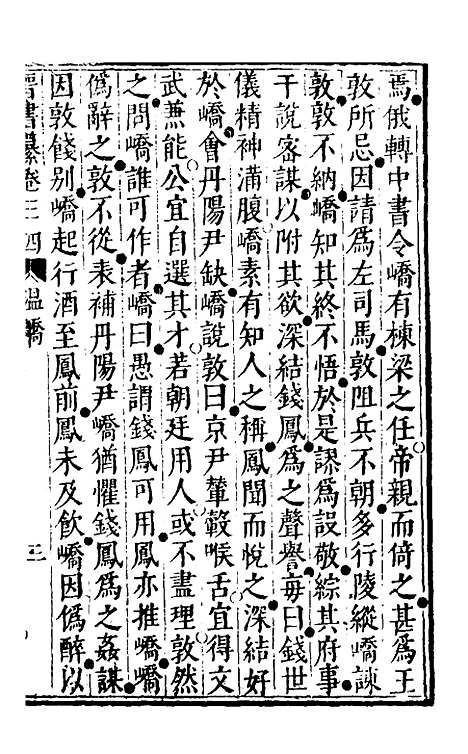 焉俄轉中書令嶠有棟梁之任帝親而倚之甚爲王
敦所忌因請爲左司馬敦阻兵不朝多行陵縱嶠諫
敦敦不納嶠知其終不悟於是謬爲設敬綜其府事
干說密謀以附其欲深結錢鳳爲之聲譽每曰錢世
儀精神滿腹嶠素有知人之稱鳳聞而悅之深結好
於嶠會丹陽尹缺嶠說敦曰京尹輦轂喉舌宜得文
武兼能公宜自選其才若朝廷用人或不盡理敦然
之問嶠誰可作者嶠曰愚謂錢鳳可用鳳亦推嶠嶠
僞辭之敦不從表補丹陽尹嶠猶懼錢鳳爲之姦謀
因敦餞別嶠起行酒至鳳前鳳未及飲嶠因僞醉以
晉書纂卷三四 溫嶠 三